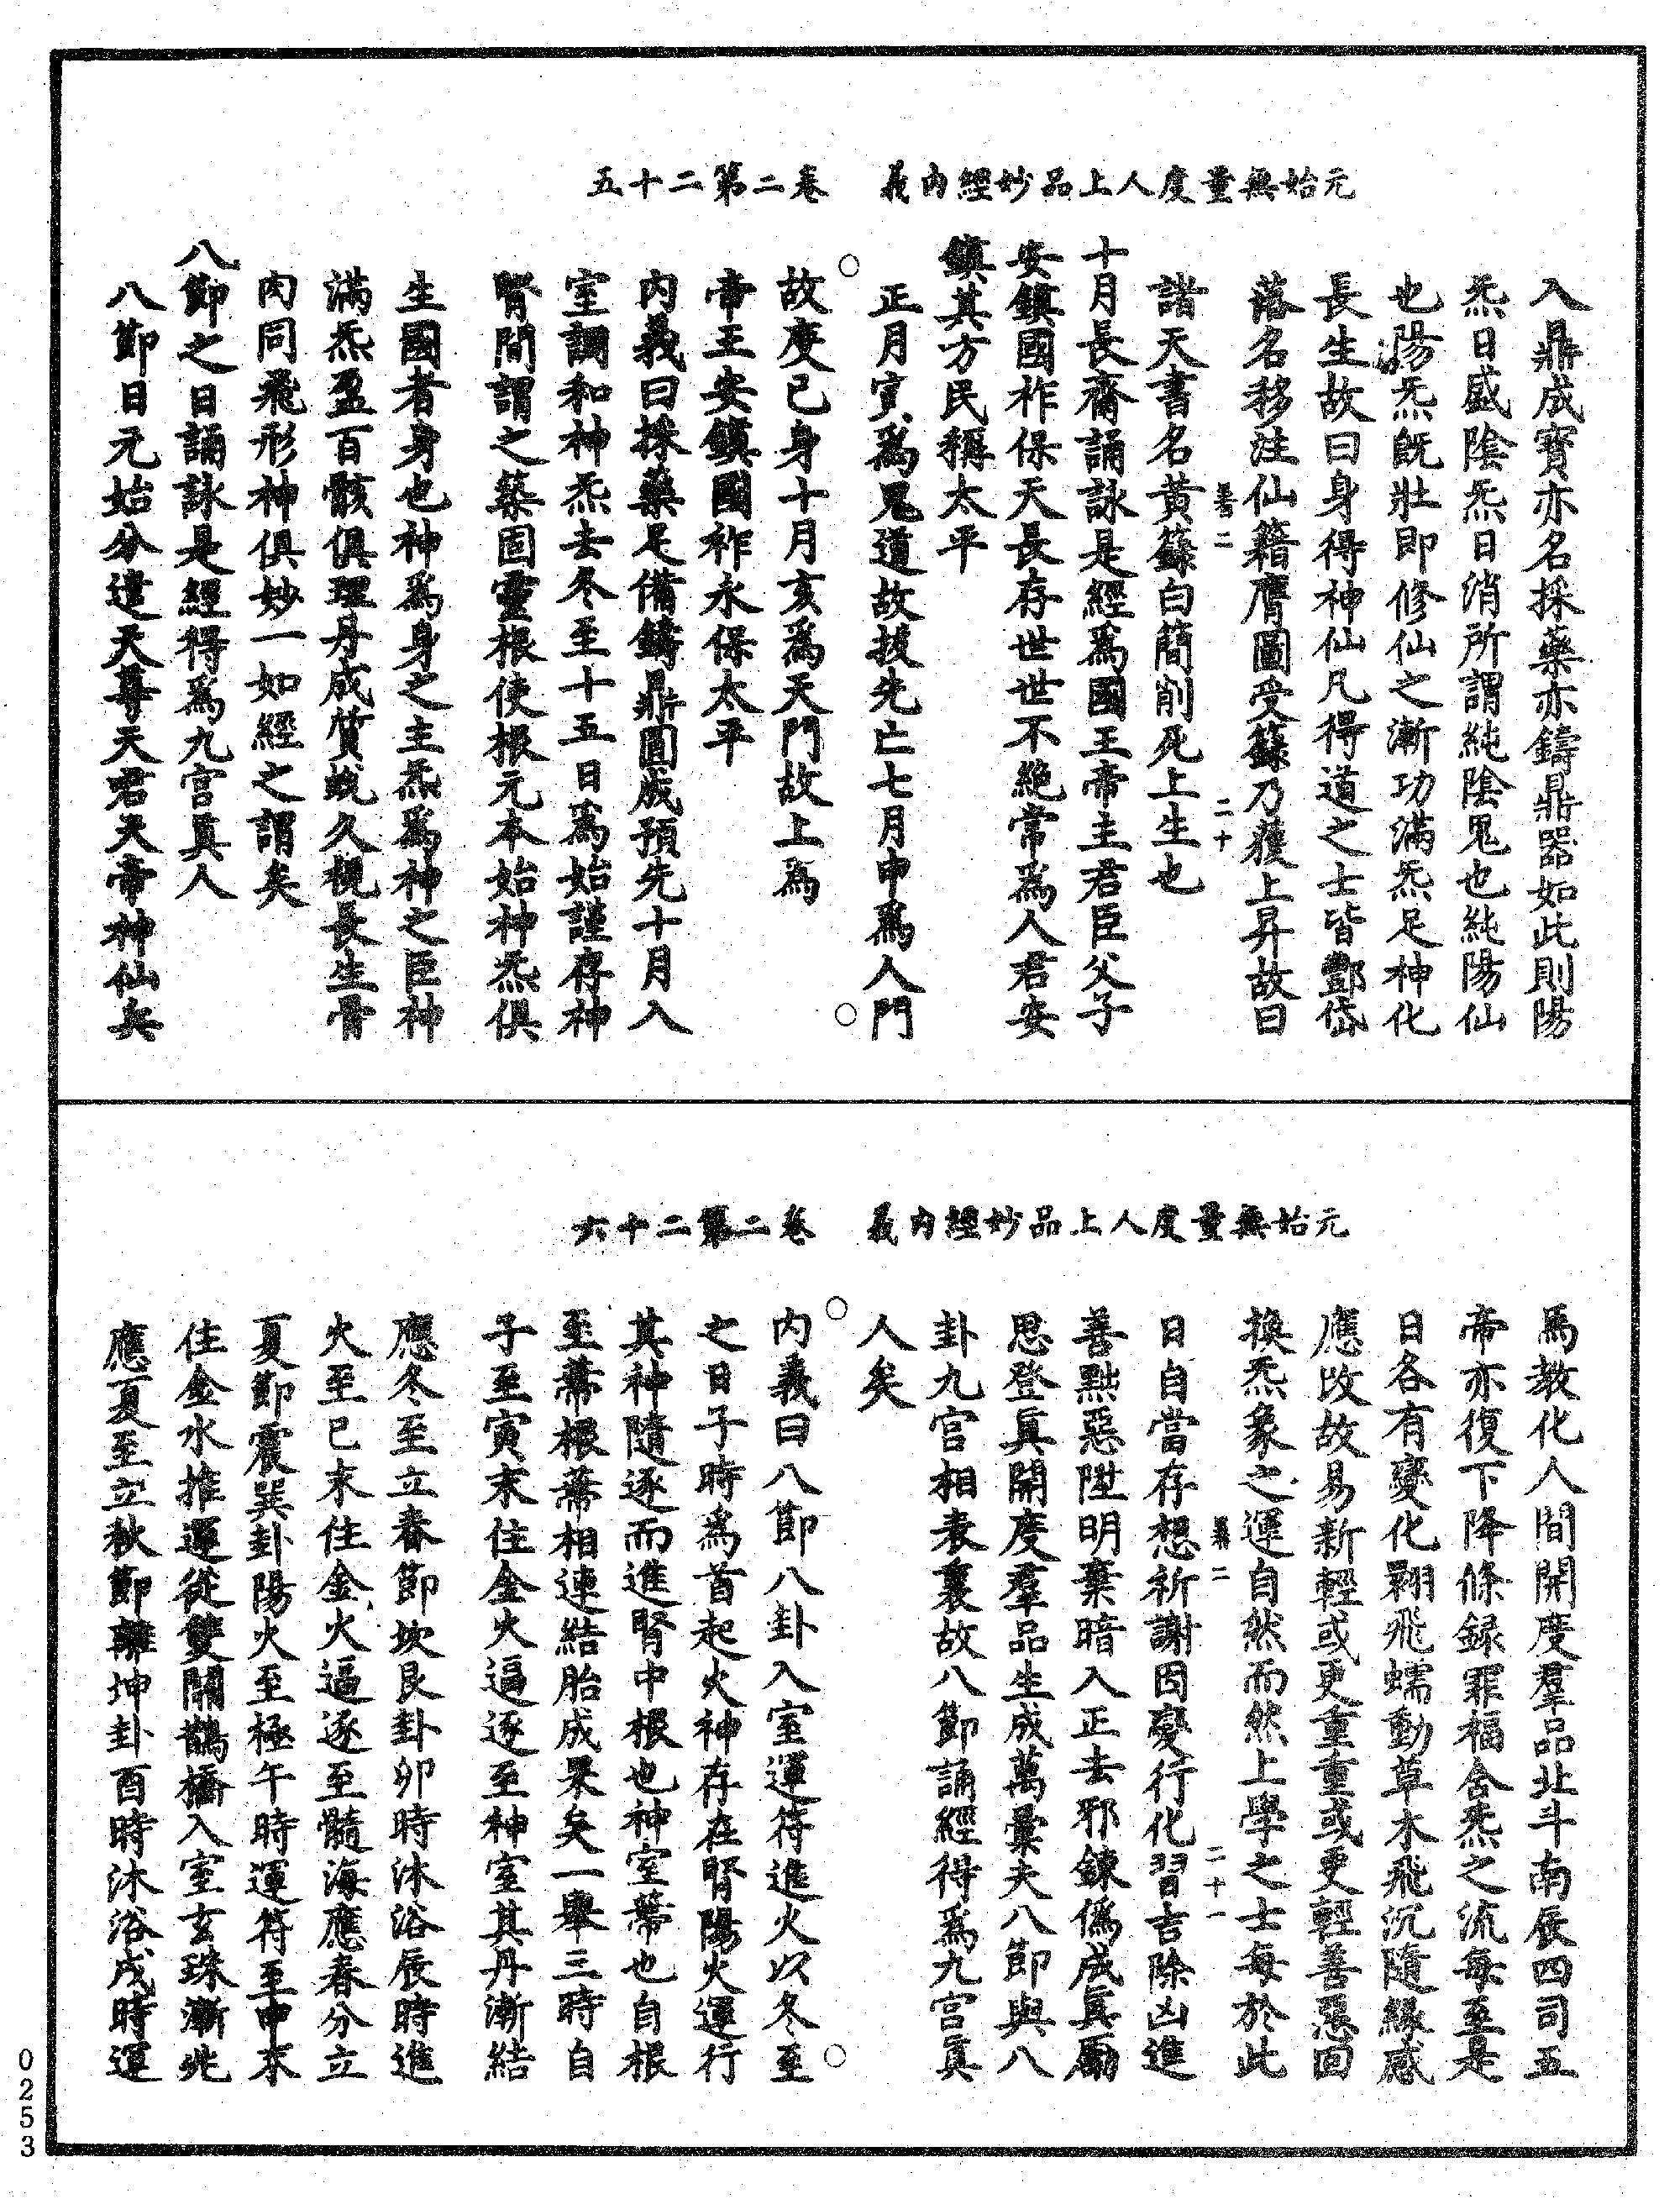 元始無量度人上品妙經內義　卷二第二十五
入鼎成寶亦名採藥亦鑄鼎器如此則陽
炁日盛陰炁日消所謂純陰鬼也純陽仙
也陽炁既壯即修仙之漸功滿炁足神化
長生故曰身得神仙凡得道之士皆酆岱
落名移注仙籍膺圖受籙乃獲上昇故曰
善二　二十
諸天書名黃籙白簡削死上生也
十月長齋誦詠是經為國王帝主君臣父子
安鎮國祚保天長存世世不絕常為人君安
鎮其方民稱太平
正月寅為鬼道故拔先亡七月申為人門
故度已身十月亥為天門故上為
帝王安鎮國祚永保太平
內義曰採藥足備鑄鼎圓成預先十月入
室調和神炁去冬至十五日為始謹存神
腎間謂之築固靈根使根元本始神炁俱
生國者身也神為身之主炁為神之臣神
滿炁盈百骸俱理丹成質蛻久視長生骨
肉同飛形神俱妙一如經之謂矣
八節之日誦詠是經得為九宮真人
八節日元始分遣天尊天君天帝神仙兵
元始無量度人上品妙經內義　卷二第二十六
馬教化人間開度羣品北斗南辰四司五
帝亦復下降條録罪福含炁之流每至是
日各有變化翾飛蠕動草木飛沉隨緣感
應改故易新輕或更重重或更輕善惡回
換炁象之運自然而然上學之士每於此
善二　二十一
日自當存想祈謝因變行化習吉除凶進
善黜惡陞明棄暗入正去邪鍊偽成真勵
思登真開度羣品生成萬彙夫八節與八
卦九宮相表裏故八節誦經得為九宮真
人矣
內義曰八節八卦入室運符進火以冬至
之日子時為首起火神存在腎陽火運行
其神隨逐而進腎中根也神室蒂也自根
至蒂根蒂相連結胎成果矣一舉三時自
子至寅末住金火逼逐至神室其丹漸結
應冬至立春節坎艮卦卯時沐浴辰時進
火至巳末住金火逼逐至髓海應春分立
夏節震巽卦陽火至極午時運符至申末
住金水推運從雙關鵲橋入室玄珠漸兆
應夏至立秋節離坤卦酉時沐浴戌時運
0253